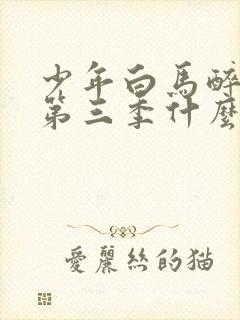 少年白馬醉
第三季什麼
愛麗絲的猫